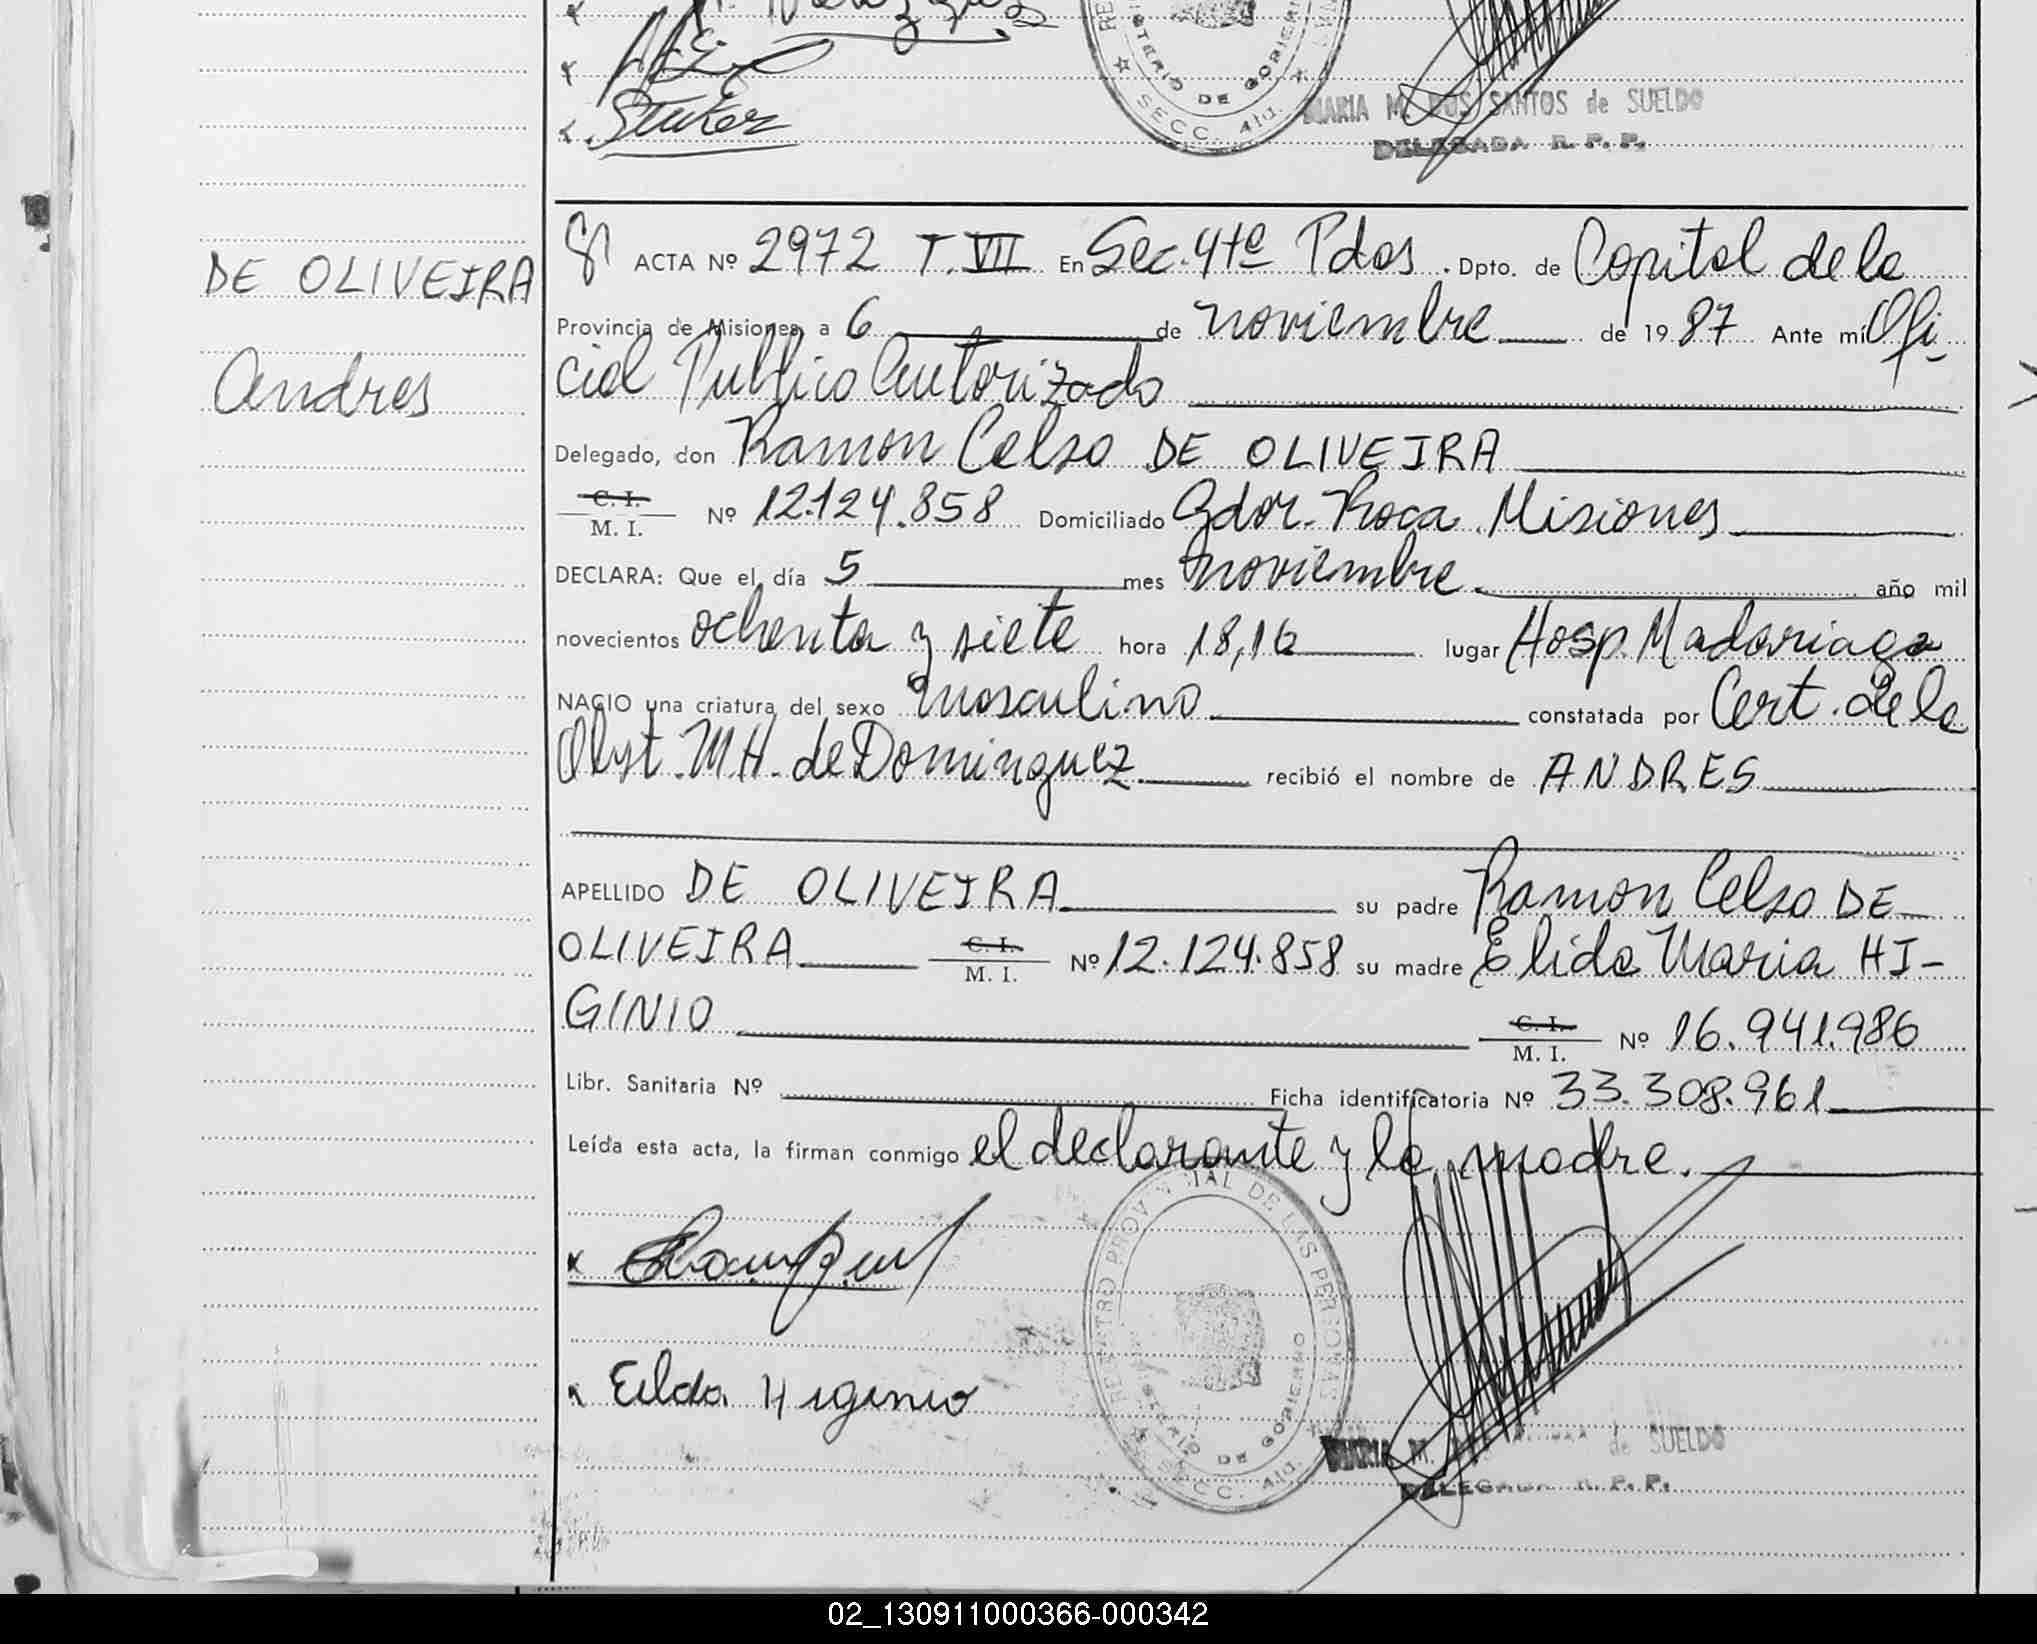 Stuker
MARIA M. DOS SANTOS de SUELDO
DELEGADA R. P. P.
MINISTERIO DE GOBIERNO
SECC. 4ta.
DE OLIVEIRA
Andres
ACTA Nº 2972 T. VII En Sec. 4ta Pdas. Dpto. de Capital de la
Provincia de Misiones, a 6 de noviembre de 1987 Ante mí Ofi-
cial Publico Autorizado
Delegado, don Ramon Celso DE OLIVEIRA
C. I.
M. I. Nº 12.124.858 Domiciliado Gdor. Roca. Misiones
DECLARA: Que el día 5 mes noviembre. año mil
novecientos ochenta y siete hora 18,16 lugar Hosp. Madariaga
NACIO una criatura del sexo masculino constatada por Cert. de la
Obst. M.H. de Dominguez recibió el nombre de ANDRES
APELLIDO DE OLIVEIRA su padre Ramon Celso DE
OLIVEIRA C. I.
M. I. Nº 12.124.858 su madre Elida Maria HI-
GINIO C. I.
M. I. Nº 16.941.986
Libr. Sanitaria Nº Ficha identificatoria Nº 33.308.961
Leída esta acta, la firman conmigo el declarante y la madre.
REGISTRO PROVINCIAL DE LAS PERSONAS
MINISTERIO DE GOBIERNO
SECC. 4ta.
x
x Eilda Higinio
MARIA M. de SUELDO
DELEGADA R. P. P.
02_130911000366-000342